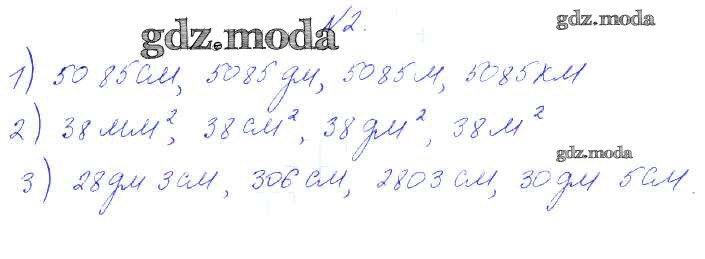 №2.
gdz.moda
gdz.moda
1) 5085см, 5085дм, 5085м, 5085км
2) 38мм², 38см², 38дм², 38м²
gdz.moda
3) 28дм 3см, 306см, 2803см, 30дм 5см.